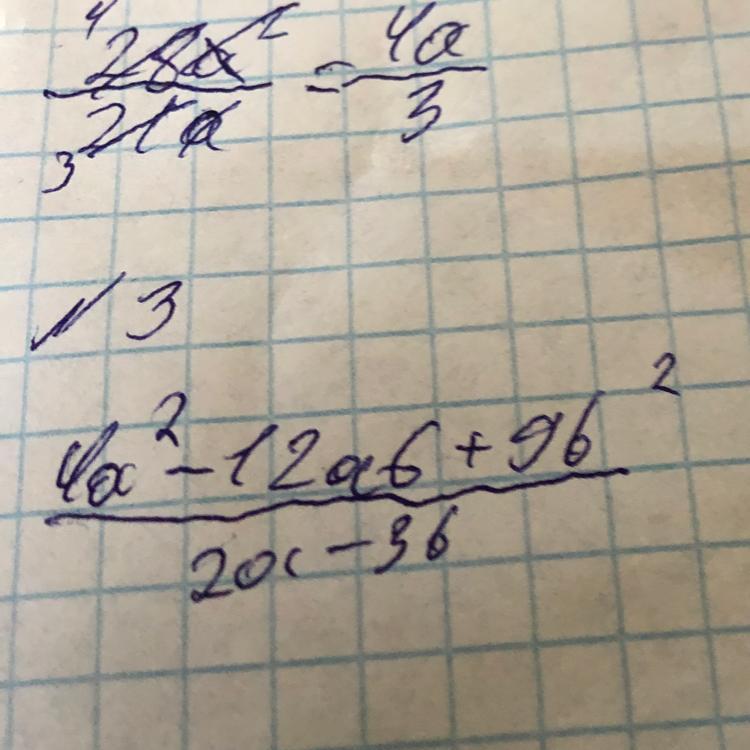 4 28a² / 3 21a = 4a / 3
№ 3
4a² - 12ab + 9b²
2a - 3b